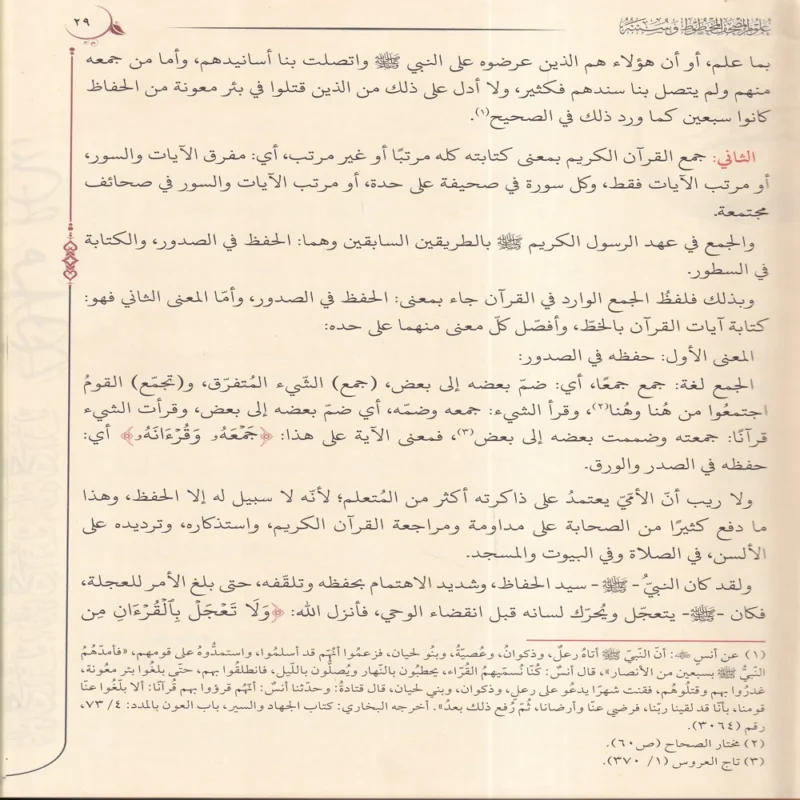 علوم المصحف المخطوط وسننه
٢٩
بما علم، أو أن هؤلاء هم الذين عرضوه على النبي ﷺ واتصلت بنا أسانيدهم، وأما من جمعه
منهم ولم يتصل بنا سندهم فكثير، ولا أدل على ذلك من الذين قتلوا في بئر معونة من الحفاظ
كانوا سبعين كما ورد ذلك في الصحيح(١).
الثاني: جمع القرآن الكريم بمعنى كتابته كله مرتبًا أو غير مرتب، أي: مفرق الآيات والسور،
أو مرتب الآيات فقط، وكل سورة في صحيفة على حدة، أو مرتب الآيات والسور في صحائف
مجتمعة.
والجمع في عهد الرسول الكريم ﷺ بالطريقين السابقين وهما: الحفظ في الصدور، والكتابة
في السطور.
وبذلك فلفظُ الجمع الوارد في القرآن جاء بمعنى: الحفظ في الصدور، وأمّا المعنى الثاني فهو:
كتابة آيات القرآن بالخطّ، وأفصّل كلّ معنى منهما على حده:
المعنى الأول: حفظه في الصدور:
الجمع لغة: جمع جمعًا، أي: ضمّ بعضه إلى بعض، (جمع) الشّيء المُتفرّق، و(تجمّع) القومُ
اجتمعُوا من هُنا وهُنا(٢)، وقرأ الشيء: جمعه وضمّه، أي ضمّ بعضه إلى بعض، وقرأت الشيء
قرآنًا: جمعته وضممت بعضه إلى بعض(٣)، فمعنى الآية على هذا: ﴿جَمْعَهُۥ وَقُرْءَانَهُۥ﴾ أي:
حفظه في الصدر والورق.
ولا ريب أنّ الأمّيّ يعتمدُ على ذاكرته أكثر من المُتعلم؛ لأنّه لا سبيل له إلا الحفظ، وهذا
ما دفع كثيرًا من الصحابة على مداومة ومراجعة القرآن الكريم، واستذكاره، وترديده على
الألسن، في الصلاة وفي البيوت والمسجد.
ولقد كان النبيُّ - ﷺ - سيد الحفاظ، وشديد الاهتمام بحفظه وتلقّفه، حتى بلغ الأمر للعجلة،
فكان - ﷺ - يتعجّل ويُحرّك لسانه قبل انقضاء الوحي، فأنزل الله: ﴿وَلَا تَعْجَلْ بِٱلْقُرْءَانِ مِن
(١) عن أنس ﷺ: أنّ النّبيّ ﷺ أتاهُ رعلٌ، وذكوانُ، وعُصيّةُ، وبنُو لحيان، فزعمُوا أنّهُم قد أسلمُوا، واستمدُّوهُ على قومهم، «فأمدّهُمُ
النّبيُّ ﷺ بسبعين من الأنصار»، قال أنسٌ: كُنّا نُسمّيهمُ القُرّاء، يحطبُون بالنّهار ويُصلُّون باللّيل، فانطلقُوا بهم، حتّى بلغُوا بئر معُونة،
غدرُوا بهم وقتلُوهُم، فقنت شهرًا يدعُو على رعلٍ، وذكوان، وبني لحيان، قال قتادةُ: وحدّثنا أنسٌ: أنّهُم قرؤوا بهم قُرآنًا: ألا بلّغُوا عنّا
قومنا، بأنّا قد لقينا ربّنا، فرضي عنّا وأرضانا، ثُمّ رُفع ذلك بعدُ». أخرجه البخاري: كتاب الجهاد والسير، باب العون بالمدد: ٤/ ٧٣،
رقم (٣٠٦٤).
(٢) مختار الصحاح (ص٦٠).
(٣) تاج العروس (١/ ٣٧٠).